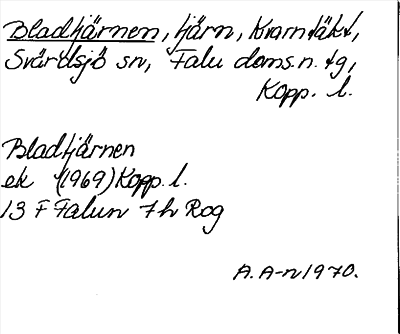 Bladtjärnen, tjärn, Kvarntäkt,
Svärdsjö sn, Falu doms.n. tg,
Kopp. l.
Bladtjärnen
ek (1969) Kopp. l.
13 F Falun 7h Rog
A. A-n 1970.